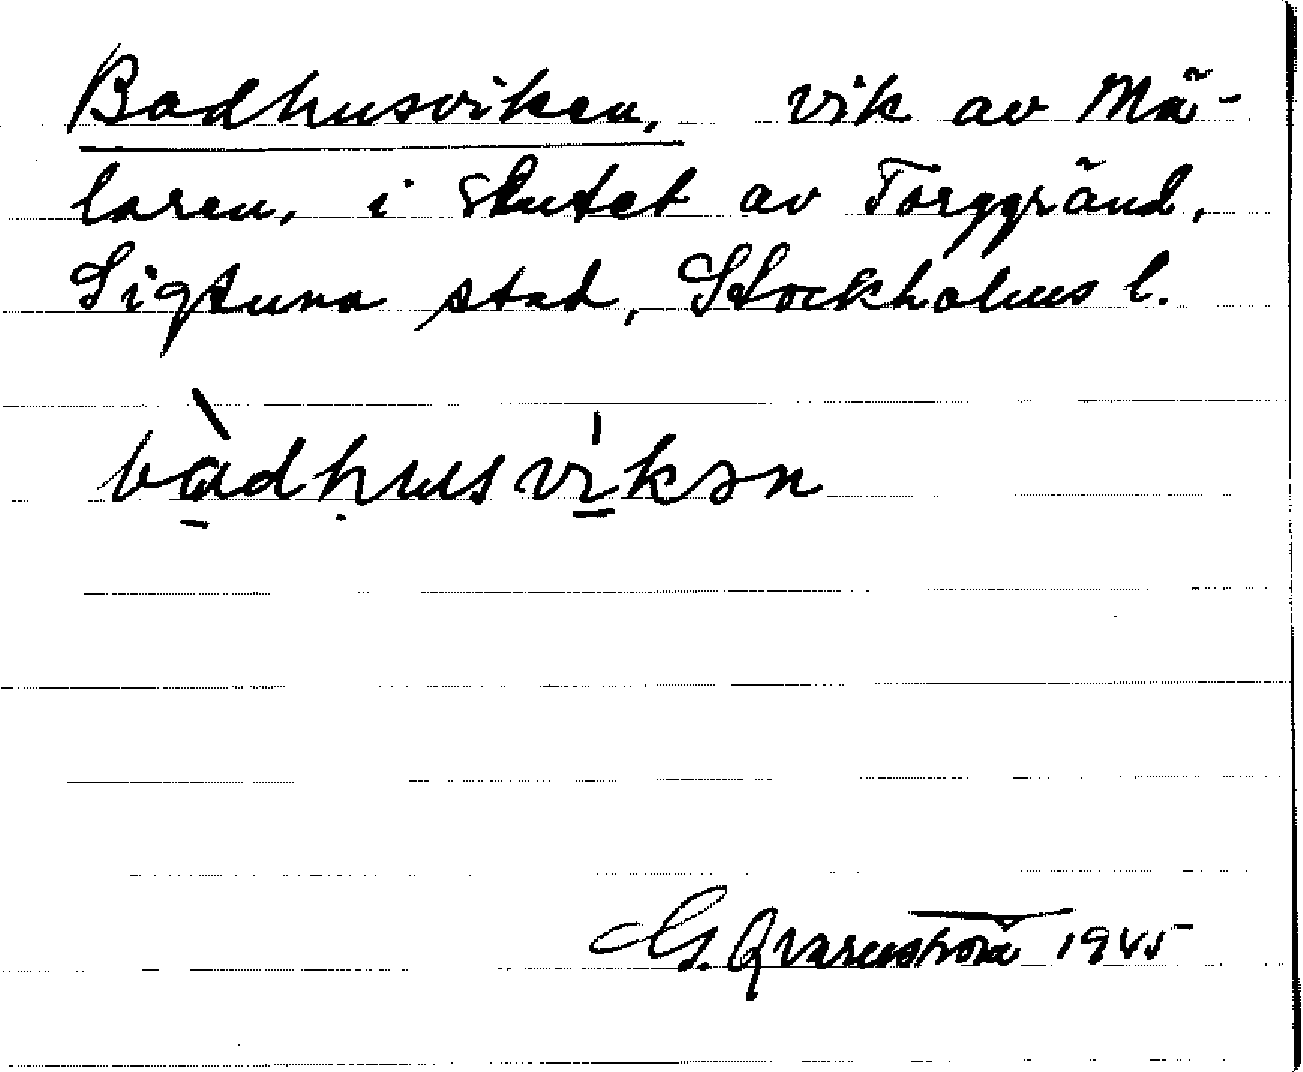 Badhusviken, vik av Mä-
laren, i slutet av Torggränd,
Sigtuna stad, Stockholms l.
bàdhusvikən
G. Qvarnström 1945